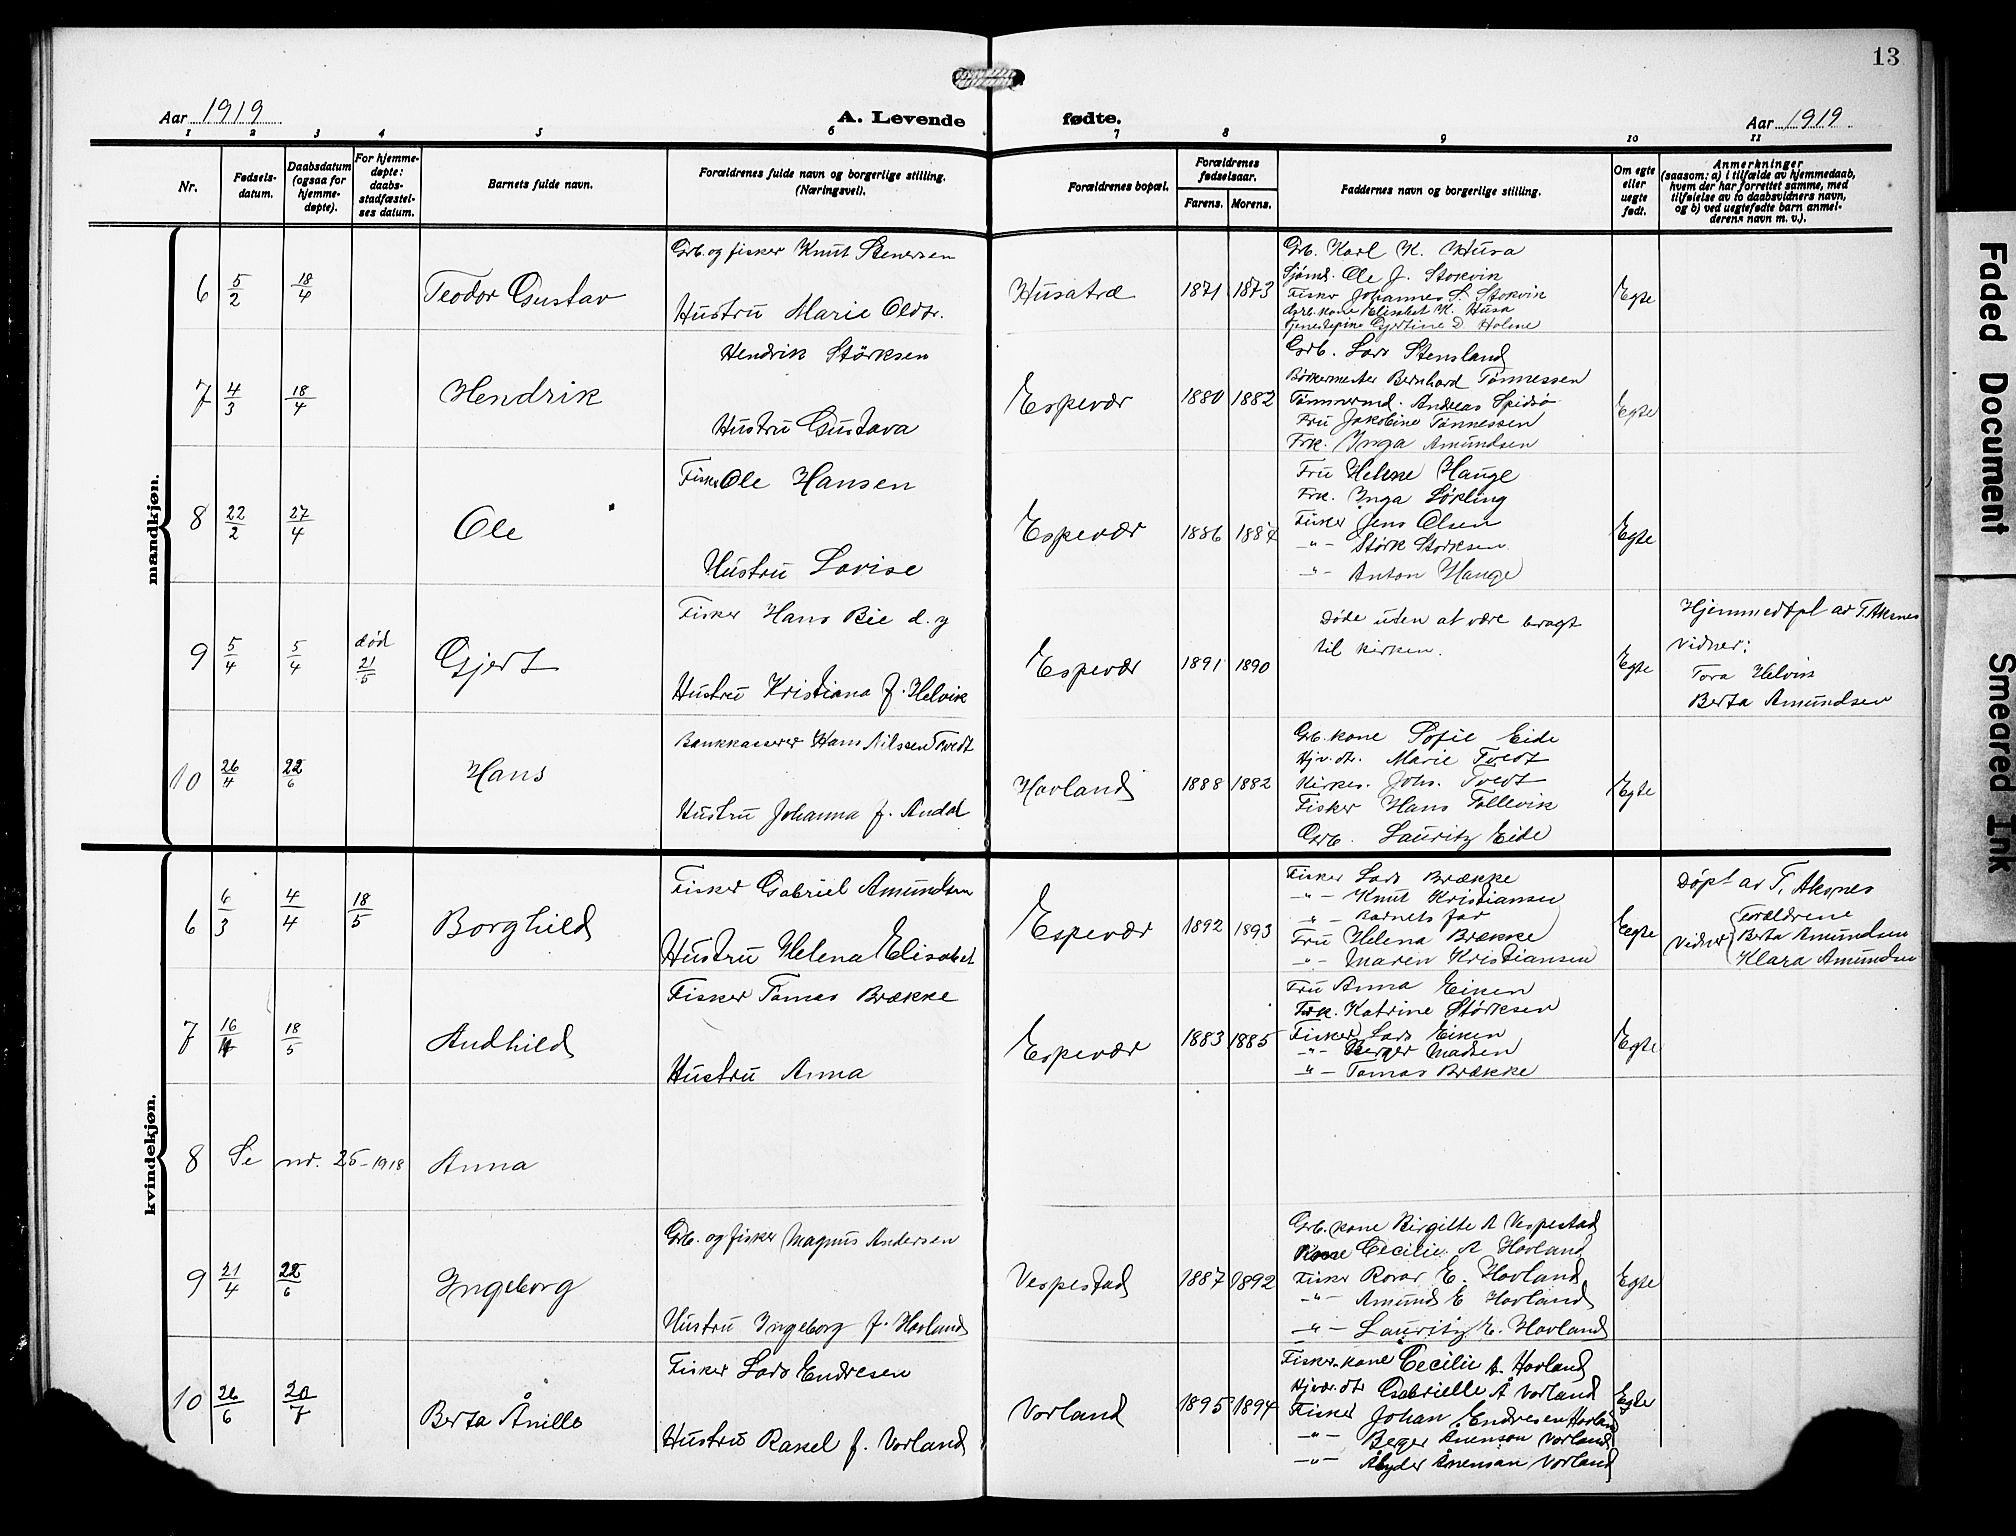 13
Aar 1919
A. Levende
fødte.
Aar 1919
1 2 3 4 5 6 7 8 9 10 11
Nr.
Fødsels-
datum.
Daabsdatum
(ogsaa for
hjemme-
døpte).
For hjemme-
døpte:
daabs-
stadfæstel-
ses datum.
Barnets fulde navn.
Forældrenes fulde navn og borgerlige stilling.
(Næringsvei).
Forældrenes bopæl.
Forældrenes
fødselsaar.
Farens. Morens.
Faddernes navn og borgerlige stilling.
Om egte
eller
uegte
født.
Anmerkninger
(saasom: a) i tilfælde av hjemmedaab,
hvem der har forrettet samme, med
tilføielse av to daabsvidners navn,
og b) ved uegtefødte barn anmel-
derens navn m. v.).
mandkjøn.
6 5/2 18/4 Teodor Gustav
Grb. og fisker Knut Stenersen
Hustru Marie Oldr.
Husatræ 1871 1873
Grb. Karl K. Husa
Sjømd. Ole J. Stokvik
Fisker Johannes S. Stokvik
Grb.kone Elisabet K. Husa
Tjenestepine Gjertine D. Holme
Egte
7 4/3 18/4 Hendrik
Hendrik Størksen
Hustru Gustava
Espevær 1880 1882
Grb. Lars Stensland
Bøkkermester Bernhard Tønnessen
Tømmermd. Andreas Spidsø
Fru Jakobine Tønnessen
Frk. Inga Amundsen
Egte
8 22/2 27/4 Ole
Fisker Ole Hansen
Hustru Lovise
Espevær 1886 1887
Fru Helene Hauge
Frk. Inga Sørling
Fisker Jens Olsen
-"- Størk Storksen
-"- Anton Hauge
Egte
9 5/4 5/4 død 21/5 Gjert
Fisker Hans Bie d. y
Hustru Kristiana f. Helvik
Espevær 1891 1890
Døde uden at være bragt
til kirken.
Egte
Hjemmedøpt av T. Aksnes
Vidner:
Tora Helvik
Berta Amundsen
10 26/4 22/6 Hans
Bankkasserer Hans Nilssen Tvedt
Hustru Johanna f. Andal
Hovland 1888 1882
Grb.kone Sofie Eide
Hjv.dt. Marie Tvedt
Kirkes. Johs. Tvedt
Fisker Hans Tollevik
Grb. Lauritz Eide
Egte
kvindekjøn.
6 6/3 4/4 18/5 Borghild
Fisker Gabriel Amundsen
Hustru Helena Elisabet
Espevær 1892 1893
Fisker Lars Brække
-"- Knut Kristiansen
-"- Barnets far
Fru Helena Brække
-"- Maren Kristiansen
Egte
Døpt av T. Aksnes
Vidner Forældrene
Berta Amundsen
Klara Amundsen
7 16/4 18/5 Audhild
Fisker Tomas Brække
Hustru Anna
Espevær 1883 1885
Fru Anna Eiken
Frk. Katrine Størksen
Fisker Lars Eiken
-"- Berger Madsen
-"- Tomas Brække
Egte
8 Se nr. 25-1918 Anna
9 21/4 22/6 Ingeborg
Grb. og fisker Magnus Andersen
Hustru Ingeborg f. Hovland
Vespestad 1887 1892
Grb.kone Birgitte A Vespestad
Kone Cecilie A Hovland
Fisker Roar E. Hovland
-"- Amund E Hovland
-"- Lauritz E. Hovland
Egte
10 26/6 20/7 Berta Ånille
Fisker Lars Endresen
Hustru Rakel f. Vorland
Vorland 1895 1894
Fisker.kone Cecilie A. Hovland
Hjvær.dt Gabrielle Å Vorland
Fisker Johan Endresen Hovland
-"- Berger Ånenson Vorland
-"- Ånensan Vorland
Egte
Faded Document
Smeared Ink